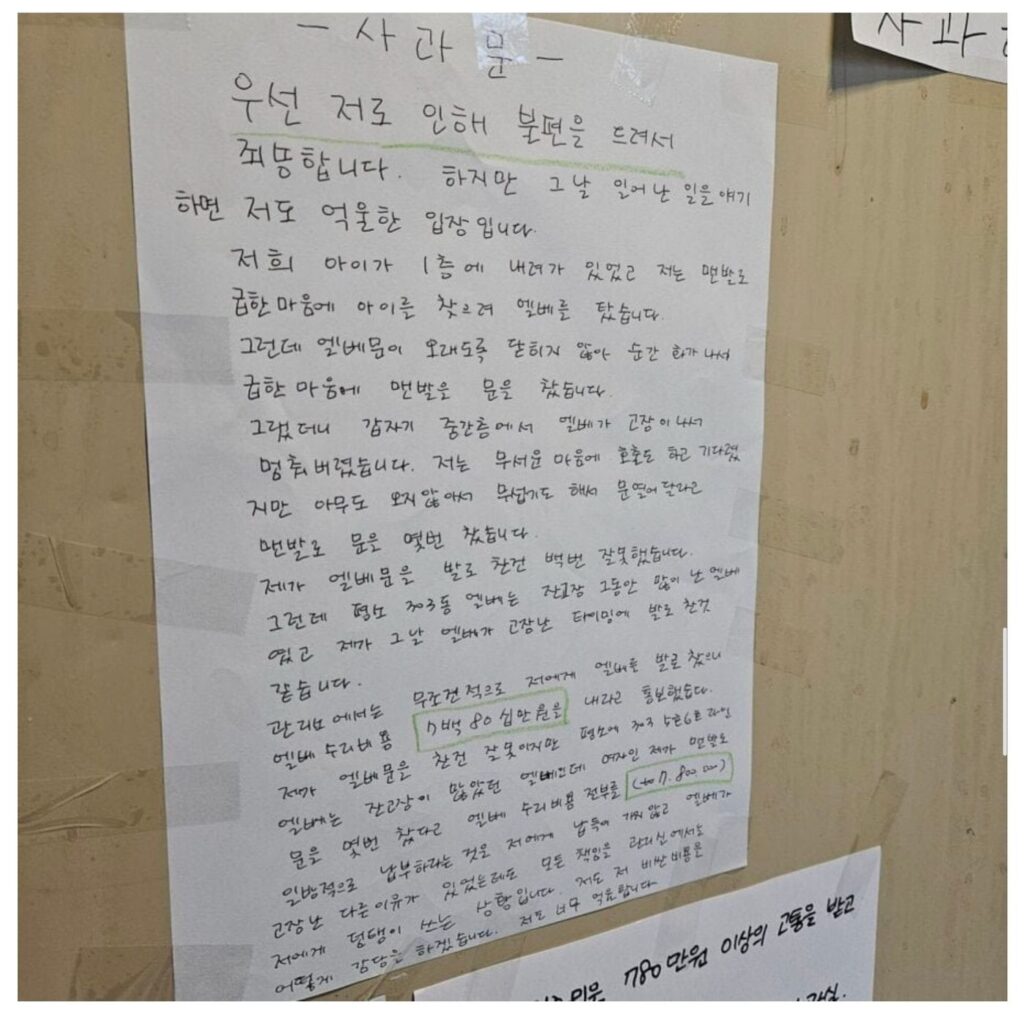 - 사 과 문 -
우선 저로 인해 불편을 드려서
죄송합니다. 하지만 그날 일어난 일을 얘기
하면 저도 억울한 입장입니다.
저희 아이가 1층에 내려가 있었고 저는 맨발로
급한 마음에 아이를 찾으려 엘베를 탔습니다.
그런데 엘베문이 오래도록 닫히지 않아 순간 화가 나서
급한 마음에 맨발을 문을 찼습니다.
그랬더니 갑자기 중간층에서 엘베가 고장이 나서
멈춰버렸습니다. 저는 무서운 마음에 호출도 하고 기다렸
지만 아무도 오지않아서 무섭기도 해서 문열어달라고
맨발로 문을 몇번 찼습니다.
제가 엘베문을 발로 찬건 백번 잘못했습니다.
그런데 평소 303동 엘베는 잔고장 그동안 많이 난 엘베
였고 제가 그날 엘베가 고장난 타이밍에 발로 찬것
같습니다.
관리소에서는 무조건적으로 저에게 엘베를 발로 찼으니
엘베 수리비용 7백 80 십만원을 내라고 통보했습다.
제가 엘베문을 찬건 잘못이지만 평소에 303 5호6호라인
엘베는 잔고장이 많았던 엘베인데 여자인 제가 맨발로
문을 몇번 찼다고 엘베 수리비용 전부를 (₩7.800.000)
일방적으로 납부하라는 것은 저에게 납득이 가지 않고 엘베가
고장난 다른이유가 있었는데도 모든 책임을 관리실에서는
저에게 덤탱이 쓰는 상황입니다. 저도 저 비싼비용을
어떻게 감당을 하겠습니다. 저도 너무 억울합니다
사과
780만원 이상의 고통을 받고